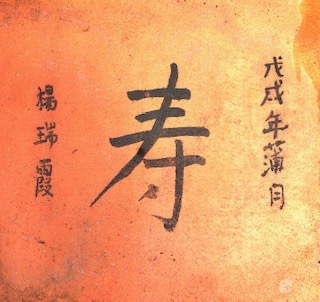 戊戌年蒲月
寿
楊瑞霞